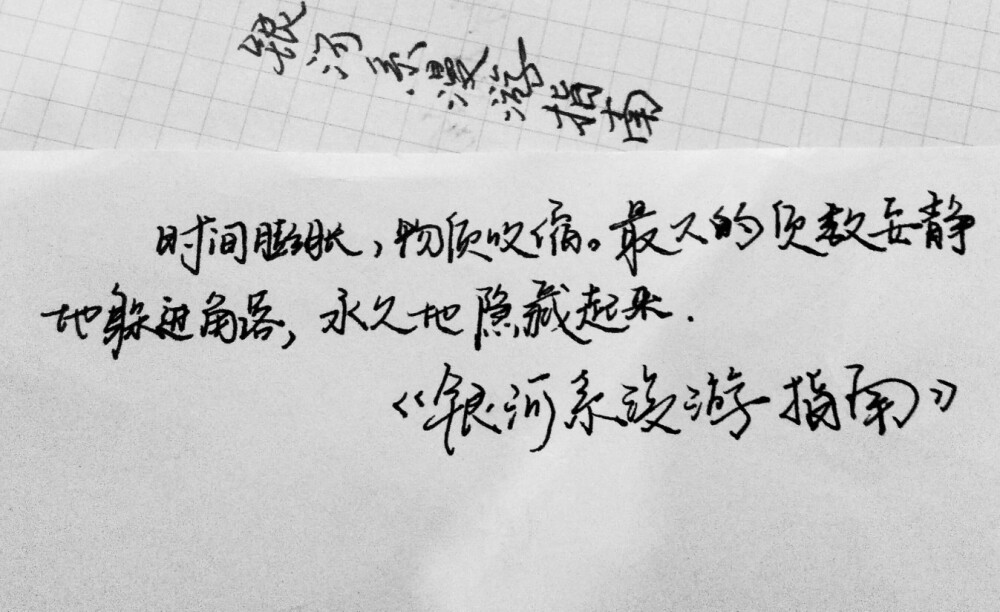 银河系漫游指南
时间膨胀，物质收缩。最大的质数安静
地躲进角落，永久地隐藏起来.
《银河系漫游指南》